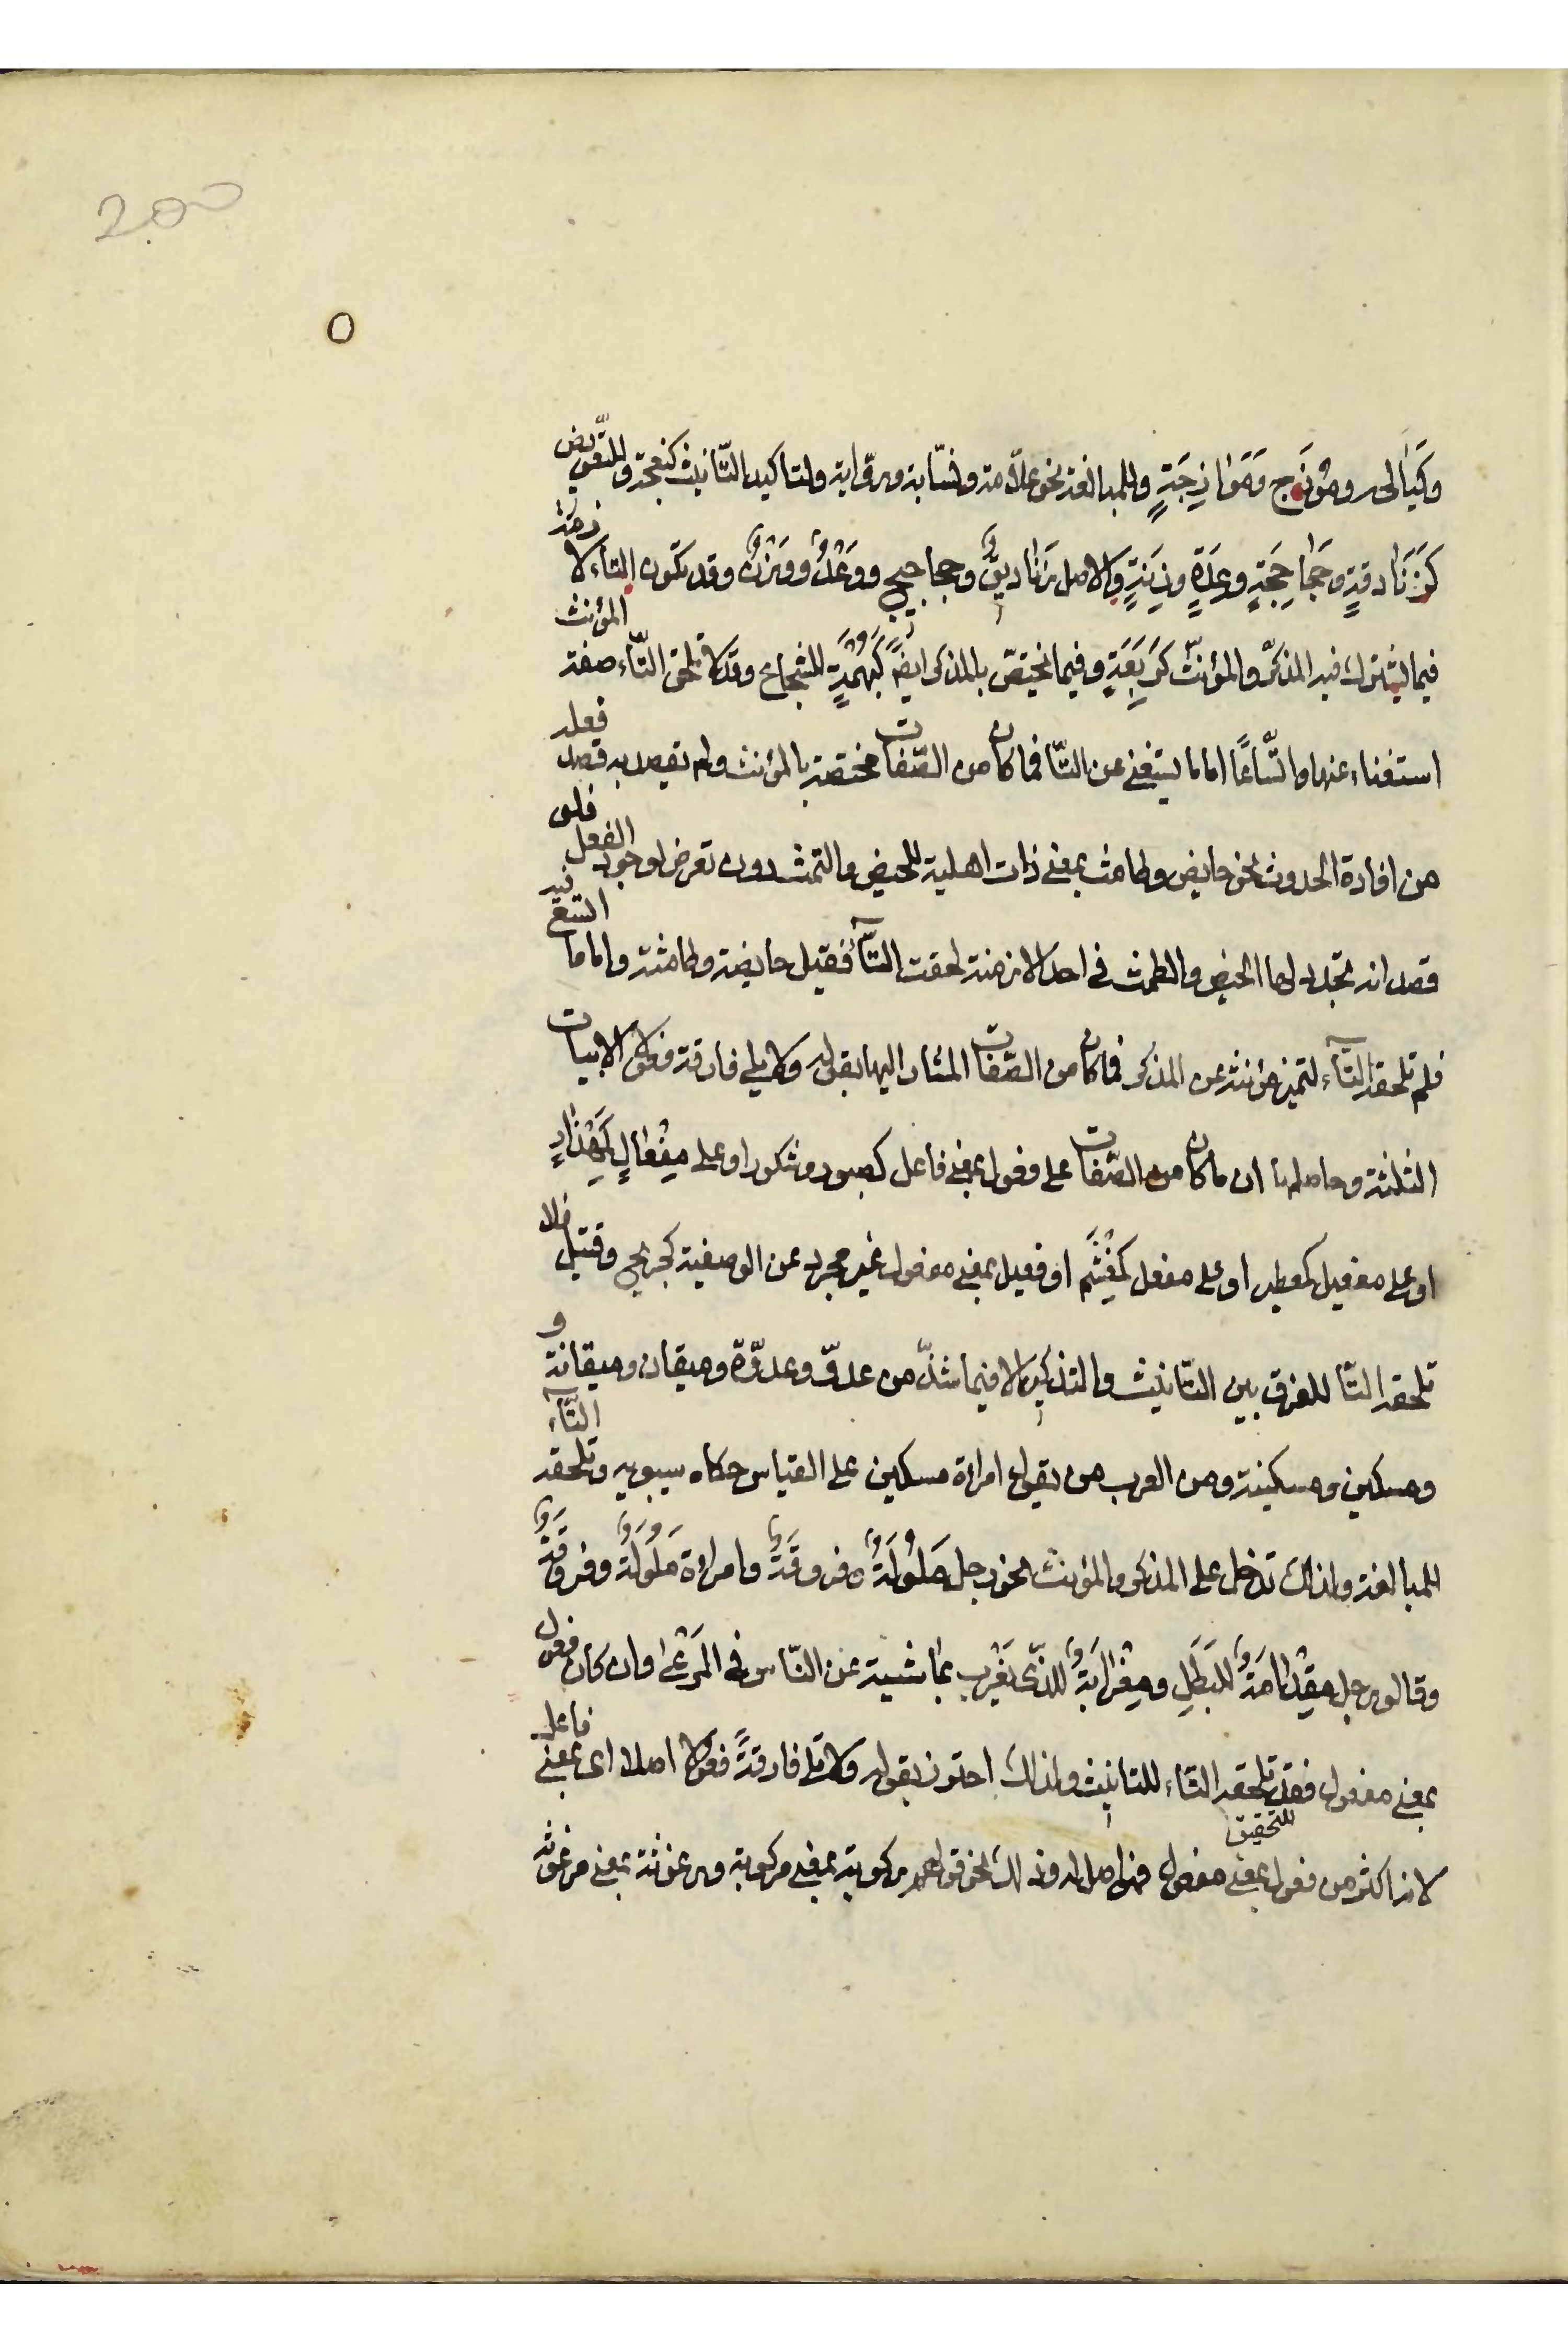 200
وكَيَالِجَ ومَوْزَج ومَوَازِجَةٍ وللمبالغة نحو علّامة ونسّابة وراوية ولتاكيد التّانيث كنعجة وللتّعويض
كَزَنَادقةٍ وجَحَاجِحَةٍ وعِدَةٍ وزِنَةٍ والاصل زَنَاديقُ وجحاجيح ووَعْدٌ ووَزْنٌ وقد تكون التاء لازمة
فيما يشترك فيه المذكّر والمؤنّث كرَبعَةٍ وفيما يختصّ بالمذكر ايضًا كبُهْمَةٍ للشجاع وقد لا تلحق التّاء صفة المؤنث
استغناء عنها واتّساعًا اما ما يستغنى عن التّا فما كان من الصّفات مختصة بالمؤنث ولم يقصد به قصد فعله
من افادة الحدوث نحو حايض وطامث بمعنى ذات اهلية للحيض والتمث دون تعرض لوجود الفعل فلو
قصد انه تجدد لها الحيض والطمث في احد الازمنة لحقت التّآء فقيل حايضة وطامثة واما ما اتسع فيه
فلم تلحقه التّآء لتميز مؤنثه عن المذكر فما كان من الصّفات المشار اليها بقوله ولا يلى فارقة فعولا الابيات
الثلثة وحاصلها ان ما كان من الصّفات على وفعول بمعنى فاعل كصبور وشكور او على مِفْعَالٍ كمِهْذَارٍ
او على مفعيل كمعطير او على مفعل كمِغْشَم او فعيل بمعنى مفعول غير مجرد عن الوصفية كجريح وقتيل فلا
تلحقه التّا للفرق بين التّانيث والتذكير الا فيما شذّ من عدوّ وعدوّة وميقان وميقانة و
ومسكين ومسكينة ومن العرب من يقول امراة مسكين على القياس حكاه سيبويه وتلحقه التّآء
للمبالغة ولذلك تدخل على المذكر والمؤنث نحو رجل مَلُولَةٌ وفروقَةٌ وامراة مَلُولَةٌ وفروقَةٌ
وقالوا رجل مِقْدَامَةٌ للبَطَلِ ومِعْزَابَةٌ للّذى يَعْزُب بمَاشية عن النّاس في المَرْعَى وان كان فعول
بمعنى مفعول فقد تلحقه التّاء للتانيث ولذلك احترز بقوله ولا تلى فارقةً فعولا اصلا اى بمعنى فاعل
لانه اكثر من فعول بمعنى مفعول فهو اصل له وذلك نحو قولهم ركوبة بمعنى مركوبة ورغوثة بمعنى مرغوثة
للتحقيق